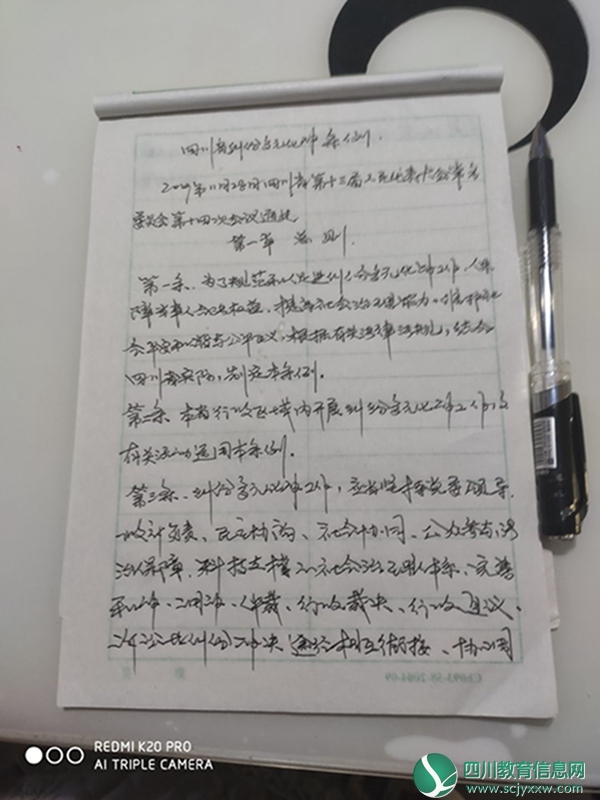 四川省纠纷多元化解条例.
2019年11月28日四川省第十三届人民代表大会常务
委员会第十四次会议通过
第一章 总则.
第一条、为了规范和促进纠纷多元化解工作,保
障当事人合法权益,提高社会治理能力,维护社
会平安和谐与公平正义,根据有关法律法规,结合
四川省实际,制定本条例.
第二条、本省行政区域内开展纠纷多元化解工作及
有关活动适用本条例.
第三条、纠纷多元化解工作,应当坚持党委领导、
政府负责、民主协商、社会协同、公众参与、法
治保障、科技支撑的社会治理体系,完善
和解、调解、仲裁、行政裁决、行政复议、
诉讼纠纷解决途径相互衔接、协调
C1693-58-2004.09
REDMI K20 PRO
AI TRIPLE CAMERA
四川教育信息网
www.scjyxxw.com